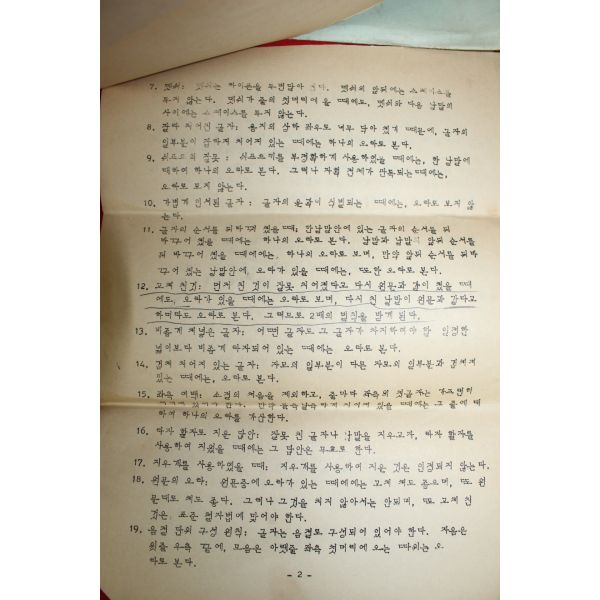 7. 하이픈을 두면 말아 한다.
두지 않는다. 줄의 첫머리에 올 때에도, 다음 낱말의
사이에는 스페이스를 두지 않는다.
8. 잘라 치어진 글자: 용지의 상하 좌우로 너무 나아 쳤기 때문에, 글자의
일부분이 잘라져 치어져 있는 때에는 하나의 오타로 본다.
9. 잘못: 부정확하게 사용하였을 때에는, 한 낱말에
대하여 하나의 오타로 본다. 그러나 자획 전체가 판독되는 때에는,
오타로 보지 않는다.
10. 가볍게 인쇄된 글자: 글자의 윤곽이 식별되는 때에는, 오타로 보지 않
는다.
11. 글자의 순서를 뒤바꾸어 쳤을 때: 한낱말안에 있는 글자의 순서를 뒤
바꾸어 쳤을 때에는 하나의 오타로 본다. 낱말과 낱말의 순서를
뒤 바꾸어 쳤을 때에는, 하나의 오타로 보며, 만약 앞뒤 순서를 뒤바
꾸어 쳤는 낱말안에, 오타가 있을 때에는, 또한 오타로 본다.
12. 고쳐 친것: 먼저 친 것이 잘못 치어졌다고 다시 원문과 같이 쳤을 때
에도, 오타가 있을 때에는 오타로 보며, 다시 친 낱말이 원문과 같다고
하더라도 오타로 본다. 그러므로 2배의 벌점을 받게 된다.
13. 비좁게 처넣은 글자: 어떤 글자도 그 글자가 차지하여야 할 일정한
넓이보다 비좁게 타자되어 있는 때에는, 오타로 본다.
14. 겹쳐 치어져 있는 글자: 자모의 일부분이 다음 자모의 일부분과 겹쳐져
있는 때에는, 오타로 본다.
15. 좌측 여백: 소절의 처음을 제외하고, 줄마다 좌측의 첫글자는
그 줄에 대
하여 하나의 오타를 가산한다.
16. 타자 활자로 지운 답안: 잘못 친 글자나 낱말을 지우고자, 타자 활자를
사용하여 지웠을 때에는 그 답안은 무효로 한다.
17. 지우개를 사용하였을 때: 지우개를 사용하여 지운 것은 인정되지 않는다.
18. 원문의 오타: 원문중에 오타가 있는 때에는 고쳐 쳐도 좋으며, 또 원
문대로 쳐도 좋다. 그러나 그것을 치지 않아서는 안되며, 또 고쳐 친
것은, 표준 철자법에 맞어야 한다.
19. 음절 단위 구성 원칙: 글자는 음절로 구성되어 있어야 한다. 자음은
윗줄 우측 끝에, 모음은 아랫줄 좌측 첫머리에 오는 따위는 오
타로 본다.
- 2 -